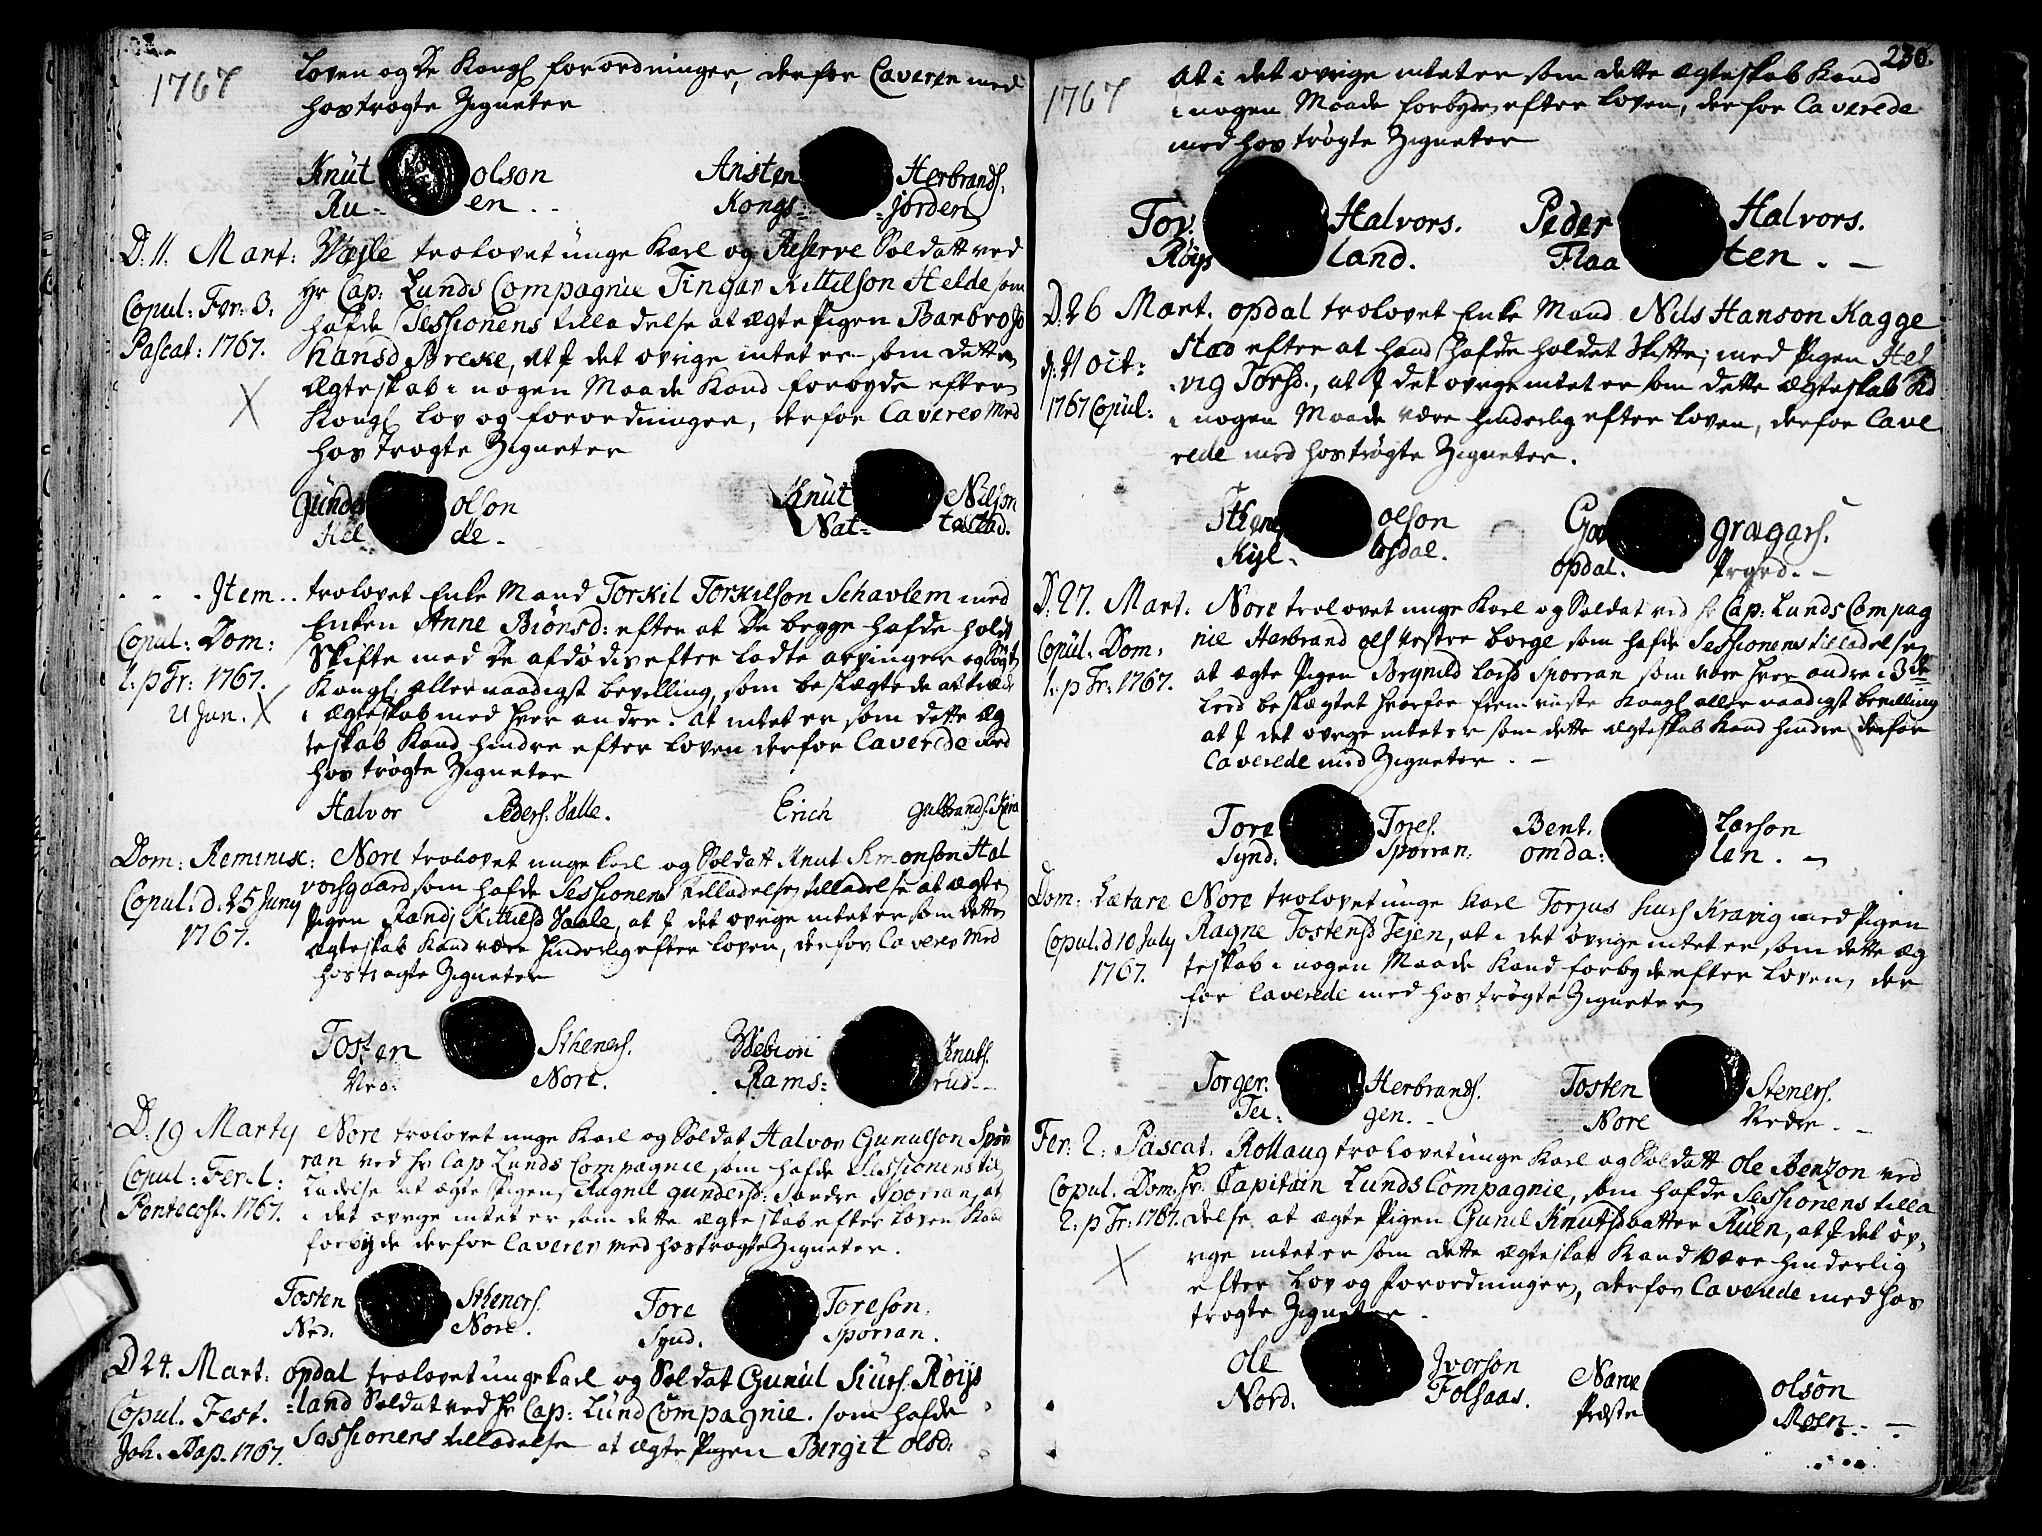 1767
Loven og De Kongl forordninger, derfor Caverer med
hostrøgte Zigneter
Knut olson Ru- en. Ansten Herbrands. Kongs- jorden
D. 11. Mart: Weyle trolovet unge Karl og Reserve Soldatt ved
Hr Cap: Lunds Compagnie Tingar Kittilson Helde som
Copul: Fer: 3.
hafde Sessionens tilladelse at ægte Pigen Barbro Jo
Pascat: 1767.
hansd Breke, at J det øvrige intet er som dette
ægteskab i nogen Maade Kand forbyde efter
Kongl Lov og forordninger, derfor Caverer Med
hostrøgte Zigneter
Gunder olson Hel de. Knut Nilson Nat- testad.
Item.. trolovet Enke Mand Torkil Torkilson Schavlem med
Enken Anne Biønsd: efter at De begge hafde holdt
Copul: Dom:
Skifte med De afdødis efter ladte arvinger og
1. p Tr: 1767.
Kongl. allernaadigst bevilling, som beslægtede at træde
21 Jun.
i ægteskab med hver andre. at intet er som dette æg
teskab Kand hindre efter Loven derfor Caverede med
hostrøgte Zigneter
Halvor Peders. Valle. Erich Gulbrands.
Dom: Reminisc: Nore trolovet unge Karl og Soldatt Knut Simonson Hal
vorsgaard som hafde Sessionens tilladelse tilladelse at ægte
Copul: d. 25 Juny
Pigen Randj Kittilsd Vaale, at J det øvrige intet er som dette
1767.
ægteskab Kand være hinderlig efter Loven, derfor Caverer Med
hostrøgte Zigneter
Tosten Stheners. Nore. Webion Knuts. Rams: rud.
D. 19 Marty Nore trolovet unge Karl og Soldat Halvor Gunulson Spor
ran ved Hr Cap Lunds Compagnie, som hafde Sessionens til
Copul: Fer. 1:
ladelse at ægte Pigen Ragnil Gundersd: Søndre Sporran, at
Pentecost. 1767.
i det øvrige intet er som dette ægteskab efter Loven Kand
forbyde derfor Caverer med hostrøgte Zigneter.
Tosten Stheners. Ned. Nore. Tore Toreson. Synd. Sporran.
D 24. Mart: opdal trolovet unge Karl og Soldat Gunul Siurs. Röijs
Copul. Fest.
land Soldat ved Hr Cap: Lund Compagnie. som hafde
Joh. Bap. 1767.
Sessionens tilladelse at ægte Pigen Birgit olsd:
230.
1767
at i det øvrige intet er som dette ægteskab Kand
i nogen Maade forbyde efter Loven, derfor Caverede
med hostrøgte Zigneter
Tov. Halvors. Röijs land. Peder Halvors. Flaa ten.
D. 26 Mart. opdal trolovet Enke Mand Nils Hanson Kagge
stad efter at hand hafde holdet Skifte, med Pigen Hel
d. 21 oct:
vig Torsd., at J det øvrige intet er som dette ægteskab
1767 Copul:
i nogen Maade være hinderlig efter Loven, derfor Cave
rede med hostrøgte Zigneter.
olson opdal. gragars.
D. 27. Mart. Nore trolovet unge Karl og Soldat ved Hr Cap: Lunds Compag
nie Herbrand ols Vestre borge, som hafde Sessionens tilladelse
Copul. Dom.
at ægte Pigen Brynild Loisd Sporran som vare hver andre i 3de
1. p Tr: 1767.
Leed beslægtet hvorfor fremviiste Kongl allernaadigst bevilling
at J det øvrige intet er som dette ægteskab Kand hindre derfor
Caverede med Zigneter.
Tore Tores. Synd. Sporran. Bent. Larson omda: len.
Dom: Lætare Nore trolovet unge Karl Torjus Siurs Kravig med Pigen
Copul. d 10 July
Ragne Tostensd Tejen, at i det øvrige intet er, som dette æg
1767.
teskab i nogen Maade Kand forbyde efter Loven, der
for Caverede med hostrøgte Zigneter
Torger. Herbrands. Tei: gen. Tosten Steners. Nore Nedre.
Fer: 2: Pascat. Rollaug trolovet unge Karl og Soldatt Ole Benzon ved
Copul. Dom.
Hr Capitain Lunds Compagnie, som hafde Sessionens tilla
2: p Tr: 1767.
delse at ægte Pigen Gunil Knutsdatter Ruen, at J det øv,
rige intet er som dette ægteskab Kand være hinderlig
efter Lov og forordninger, derfor Caverede med hos
trøgte Zigneter.
Ole Iverson Nord. Folsaas. Nane olson Præste Moen.